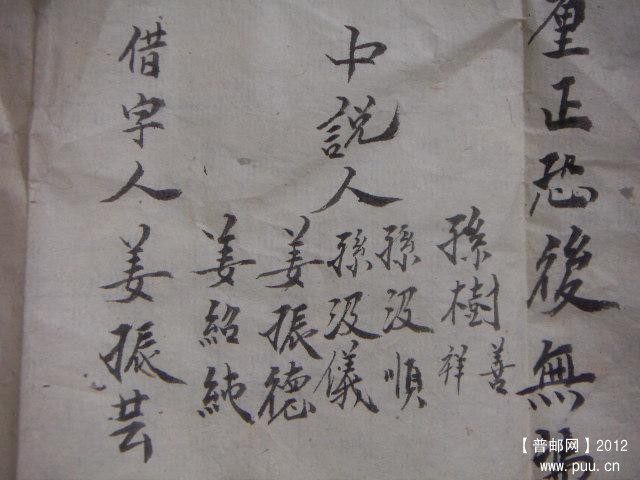 厘正恐後無憑
孫樹善祥
孫汲順
中說人孫汲儀
姜振德
姜紹純
借字人姜振芸
【普邮网】2012
www.puu.cn